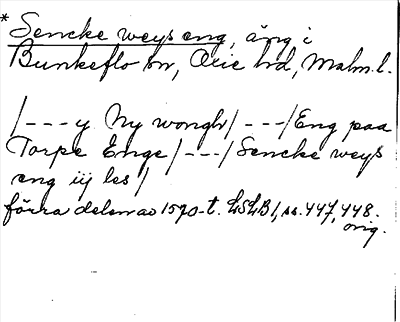 * Sencke weys eng, äng i
Bunkeflo sn, Oxie hd, Malm. l.
/---y Ny wongh/ ---/Eng paa
Torpe Enge/---/Sencke weys
eng iij les/
förra delen av 1570-t. LSLB1, ss. 447, 448.
orig.